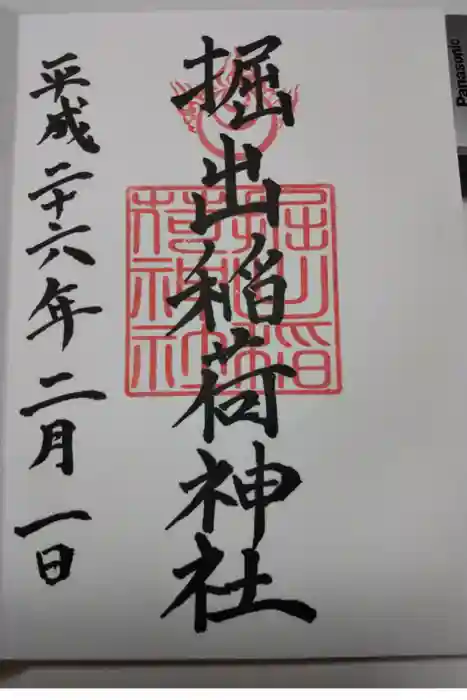 掘出稲荷神社
平成二十六年二月一日
Panasonic